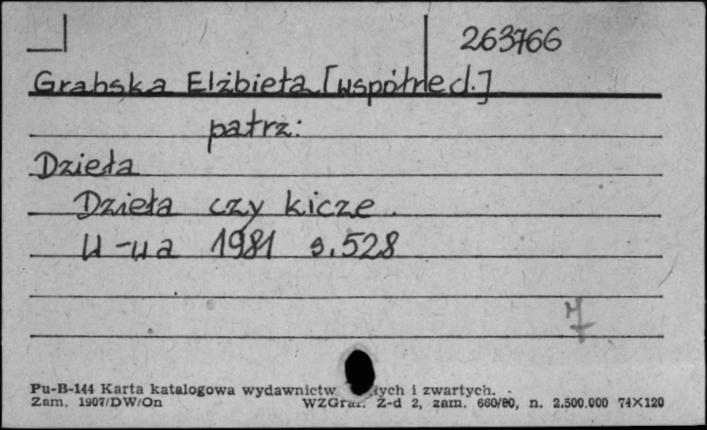 263766
Grabska Elżbieta [współred.]
patrz:
Dzieła
Dzieła czy kicze.
W-wa 1981 s. 528
7
Pu-B-144 Karta katalogowa wydawnictw i zwartych.
Zam. 1907/DW/On WZGraf. Z-d 2, zam. 660/80, n. 2.500.000 74×120